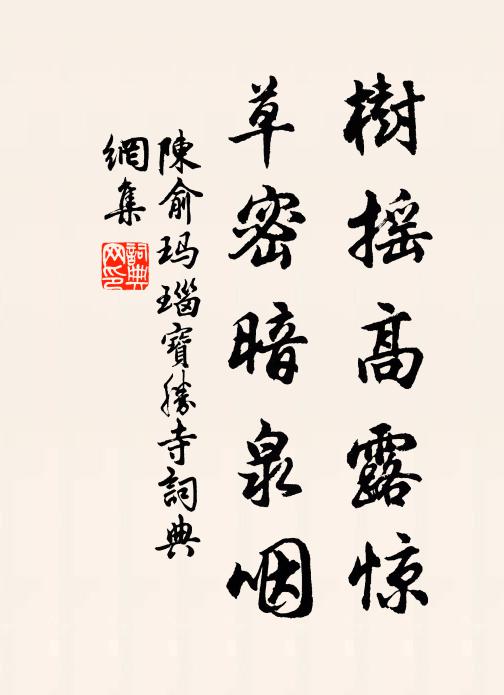 樹摇高露惊
草密暗泉咽
陳俞玛瑙寶勝寺詞典
網集
詞典
网印